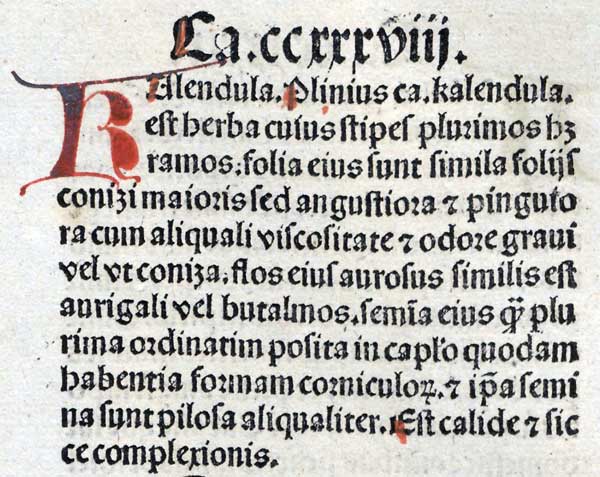 Ca.ccxxxviij.
KAlendula. Plinius ca. kalendula.
est herba cuius stipes plurimos hꝫ
ramos: folia eius sunt simila folijs
conizi maioris sed angustiora ⁊ pinguio
ra cum aliquali viscositate ⁊ odore graui
vel vt coniza. flos eius aurosus similis est
aurigali vel butalmos. semīa eius qꝫ plu
rima ordinatim posita in capło quodam
habentia formam corniculoꝝ. ⁊ ip̄a semi
na sunt pilosa aliqualiter. Est calide ⁊ sic
ce complexionis.